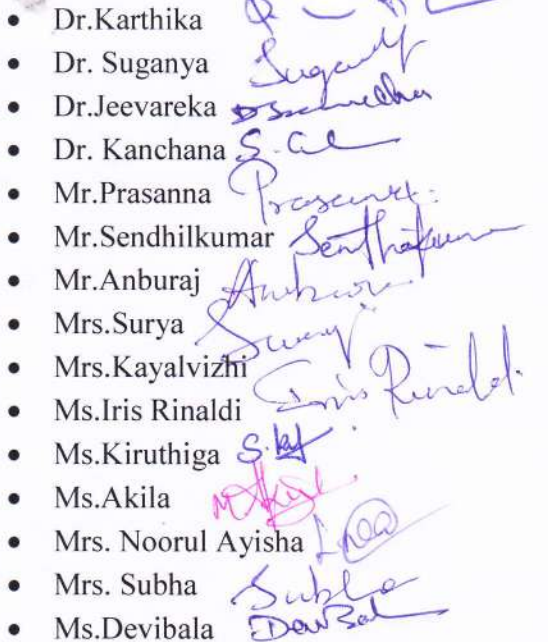 • Dr.Karthika
• Dr. Suganya Suganya
• Dr.Jeevareka
• Dr. Kanchana
• Mr.Prasanna Prasanna.
• Mr.Sendhilkumar Senthilkumar
• Mr.Anburaj
• Mrs.Surya Surya
• Mrs.Kayalvizhi
• Ms.Iris Rinaldi Iris Rinaldi.
• Ms.Kiruthiga
• Ms.Akila
• Mrs. Noorul Ayisha
• Mrs. Subha Subha
• Ms.Devibala